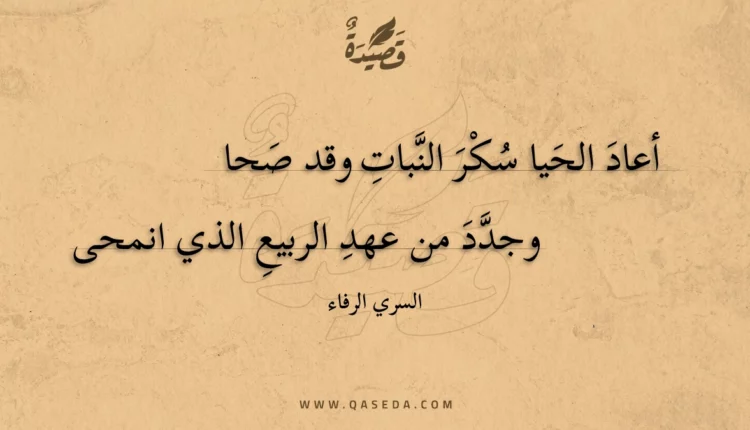 قَصِيْدَةٌ
أعادَ الحَيا سُكْرَ النَّباتِ وقد صَحا
وجدَّدَ من عهدِ الربيعِ الذي انمحى
السري الرفاء
WWW.QASEDA.COM